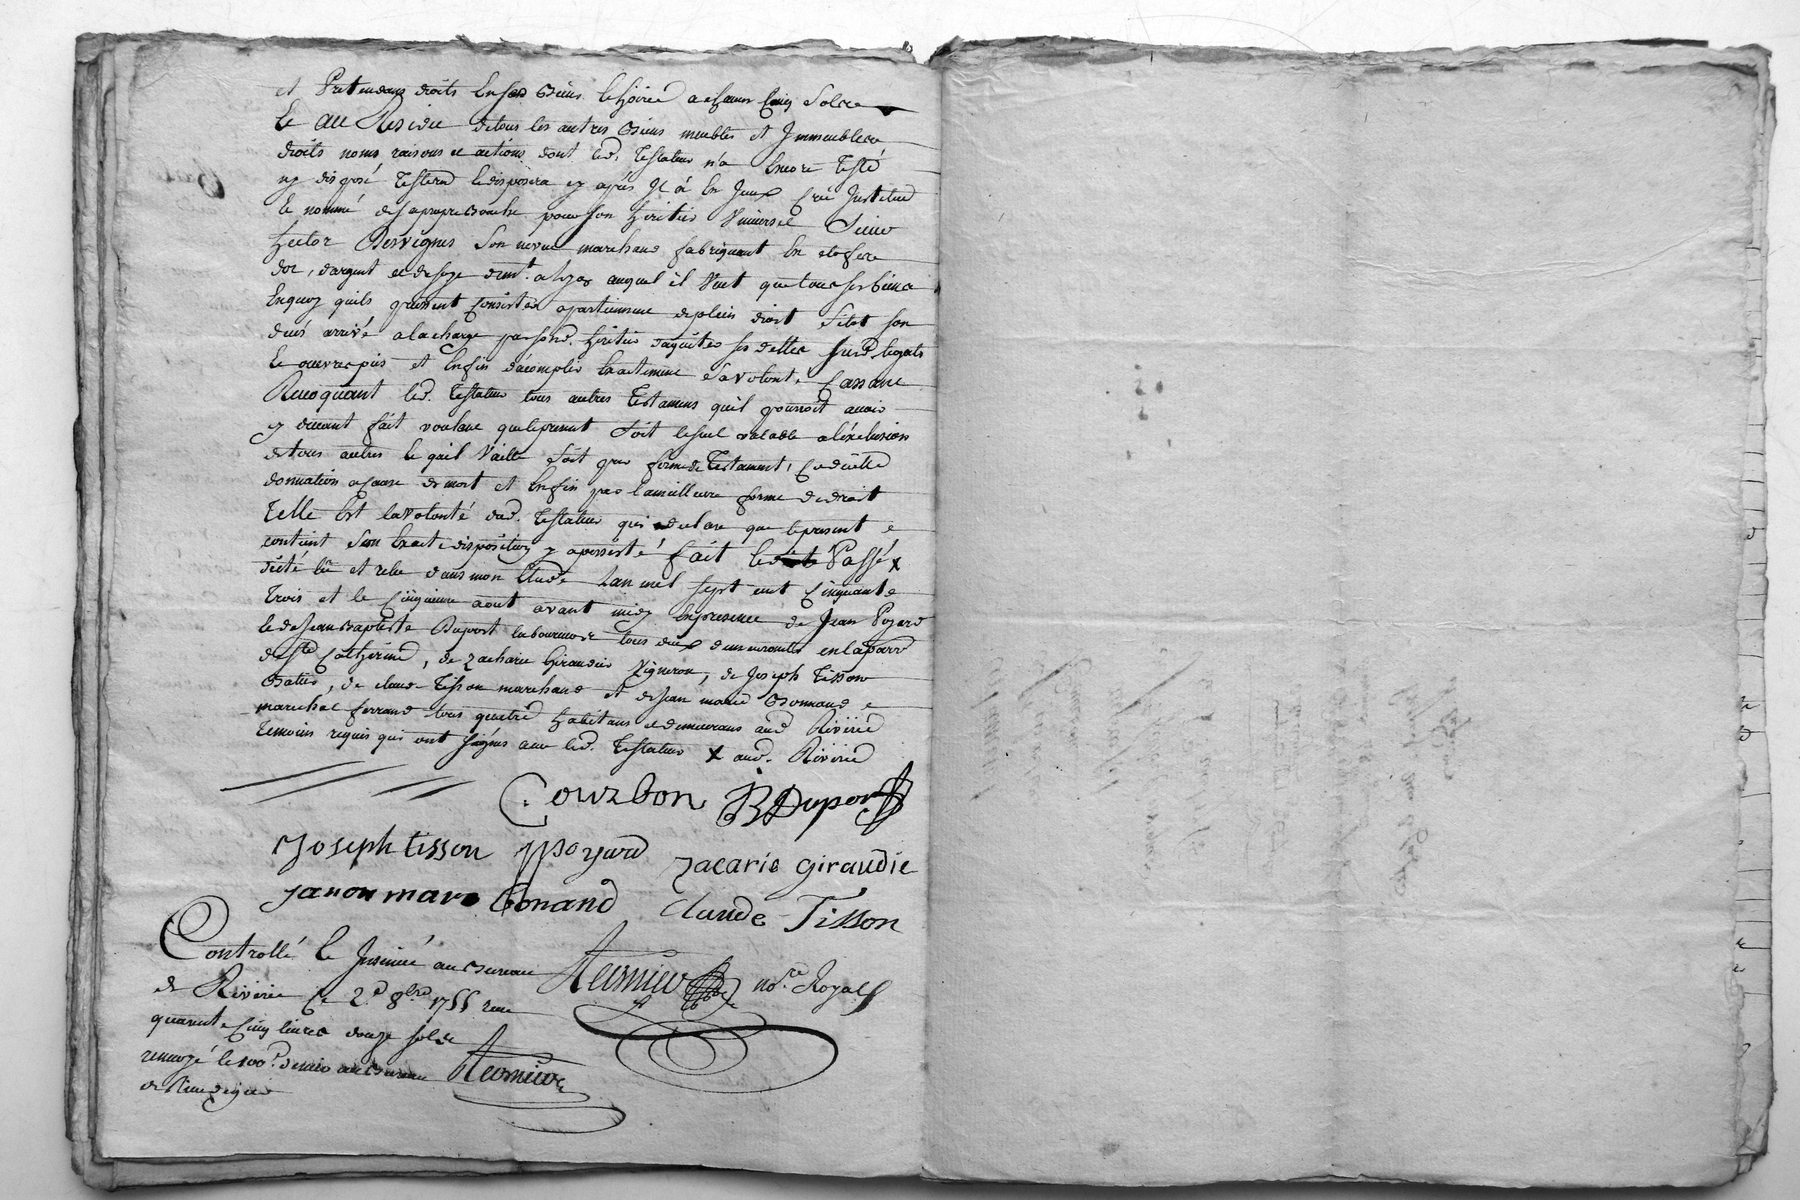 et Pretendans droits En ses Biens Et hoirie a chacun Cinq Sols et
Et au Residu de tous les autres Biens meubles et Jmmeubles
droits noms raisons et actions dont led. Testateur n'a Encore Testé
ny disposé Testera Et disposera cy après Jl a fait Creé Jnstitué
Et nommé de sa propre Bouche pour son heritier Universel Sieur
hector Son neveu marchand fabriquant En etoffes
dor, dargent et de soye demt. a Lyon auquel il Veut que tous ses biens
En quoy quils puissent Consister apartiennent de plein droit Sitot son
deces arrivé a la charge par sond. heritier daquiter ses dettes susd. legats
Et œuvres pies et Enfin dacomplir Exactement Sa Volonté, Cassant
Revoquant led. Testateur tous autres Testamens quil pourroit avoir
cy devant fait voulant que le present Soit le seul valable a lexclusion
de tous autres Et quil Vaille soit par forme de Testament, Codicille
donnation a cause de mort et Enfin par la meilleure forme de droit
Telle Est la volonté dud. Testateur qui declare que le present
contient Son Exacte disposition y a persisté fait Et Passé x
dicté lû et relu dans mon Etude Lan mil sept cent Cinquante
Trois et le Cinquieme aout avant midy En presence de Jean Poyard
Et de Jean Baptiste Duport laboureurs tous deux demeurants en la parr.
de Ste Catherine, de Zacharie Giraudier Vigneron, de Joseph Tisson
, de claude Tisson marchand et de Jean marie Bonnand
marechal ferrand tous quatre habitans et demeurans aud Riverie
Temoins requis qui ont signés avec led. Testateur x aud. Riverie
Courbon JB Duport
Joseph tisson J poyard zacarie giraudie
janon mari bonand claude Tisson
Controllé Et Jnsinué au Bureau
de Riverie Ce 2.d 8bre 1755 recu not.re Royal
quarente Cinq livres douze sols
renvoyé le 100e. denier au Bureau